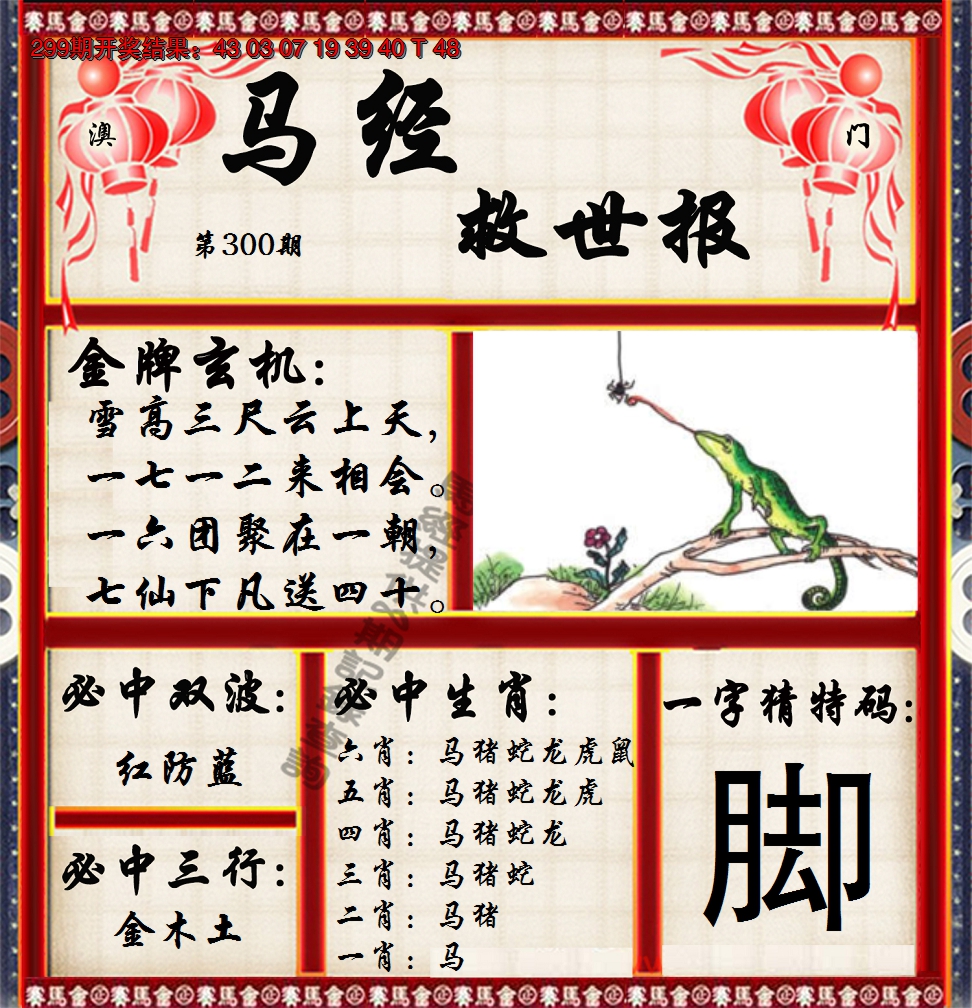 299期开奖结果：43 03 07 19 39 40 T 48
澳
门
马经
救世报
第300期
金牌玄机：
雪高三尺云上天，
一七一二来相会。
一六团聚在一朝，
七仙下凡送四十。
必中双波：
红防蓝
必中三行：
金木土
必中生肖：
六肖：马猪蛇龙虎鼠
五肖：马猪蛇龙虎
四肖：马猪蛇龙
三肖：马猪蛇
二肖：马猪
一肖：马
一字猜特码：
脚